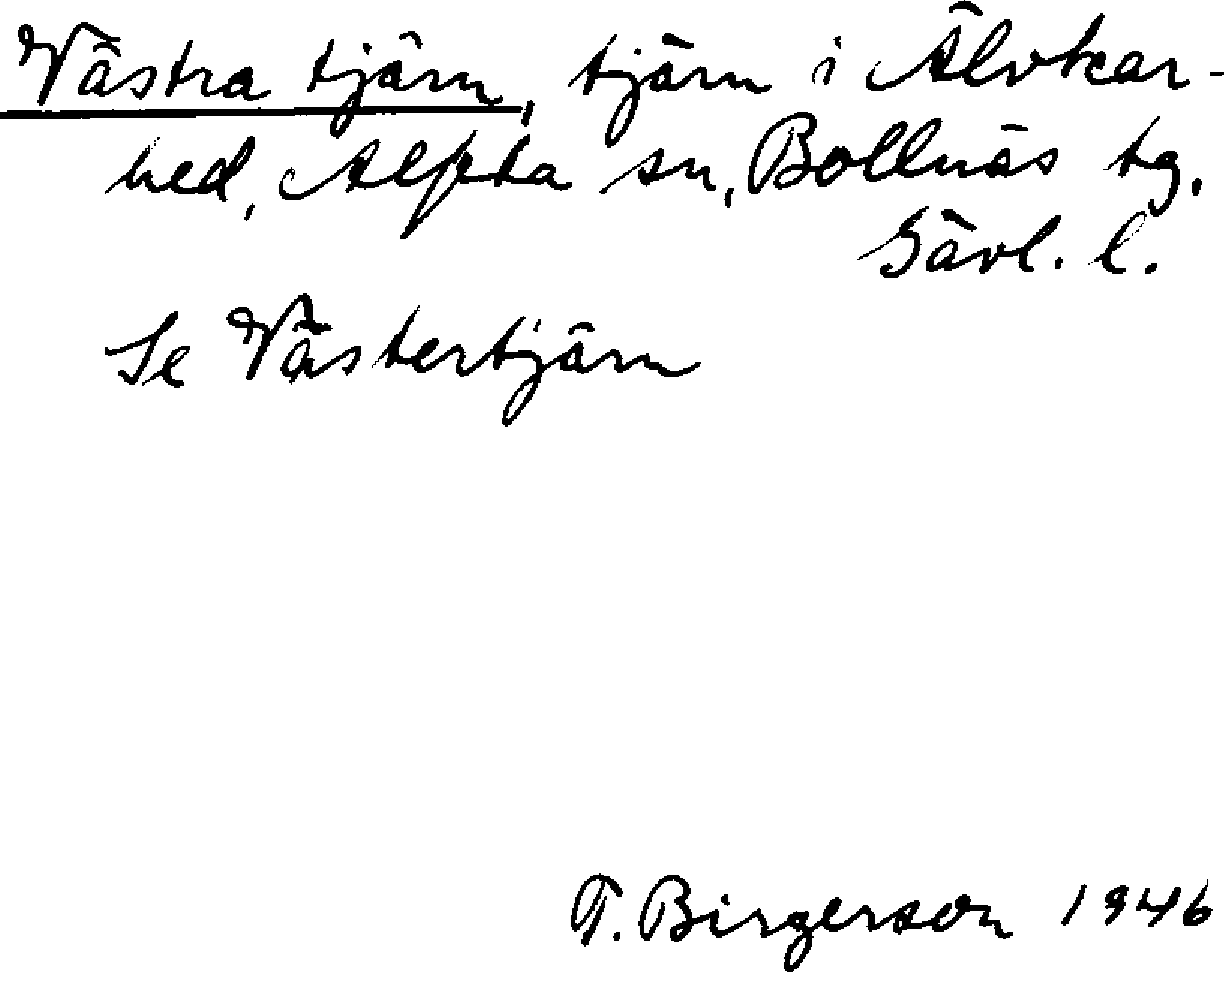 Västra tjärn, tjärn i Älvkar-
hed, Alfta sn, Bollnäs tg.
Gävl. l.
Se Västertjärn
T. Birgerson 1946